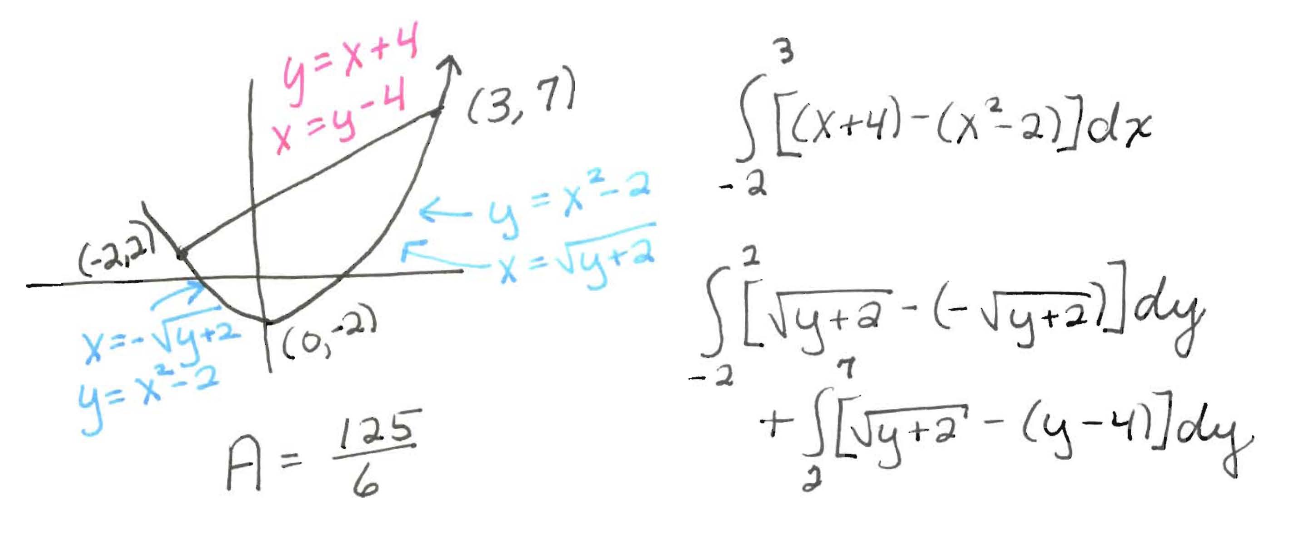 y = x + 4
x = y - 4
(3, 7)
y = x² - 2
x = √(y+2)
(-2,2)
x = -√(y+2)
y = x² - 2
(0, -2)
A = 125/6
∫₋₂³ [(x+4) - (x² - 2)] dx
∫₋₂² [√(y+2) - (-√(y+2))] dy
+ ∫₂⁷ [√(y+2) - (y-4)] dy